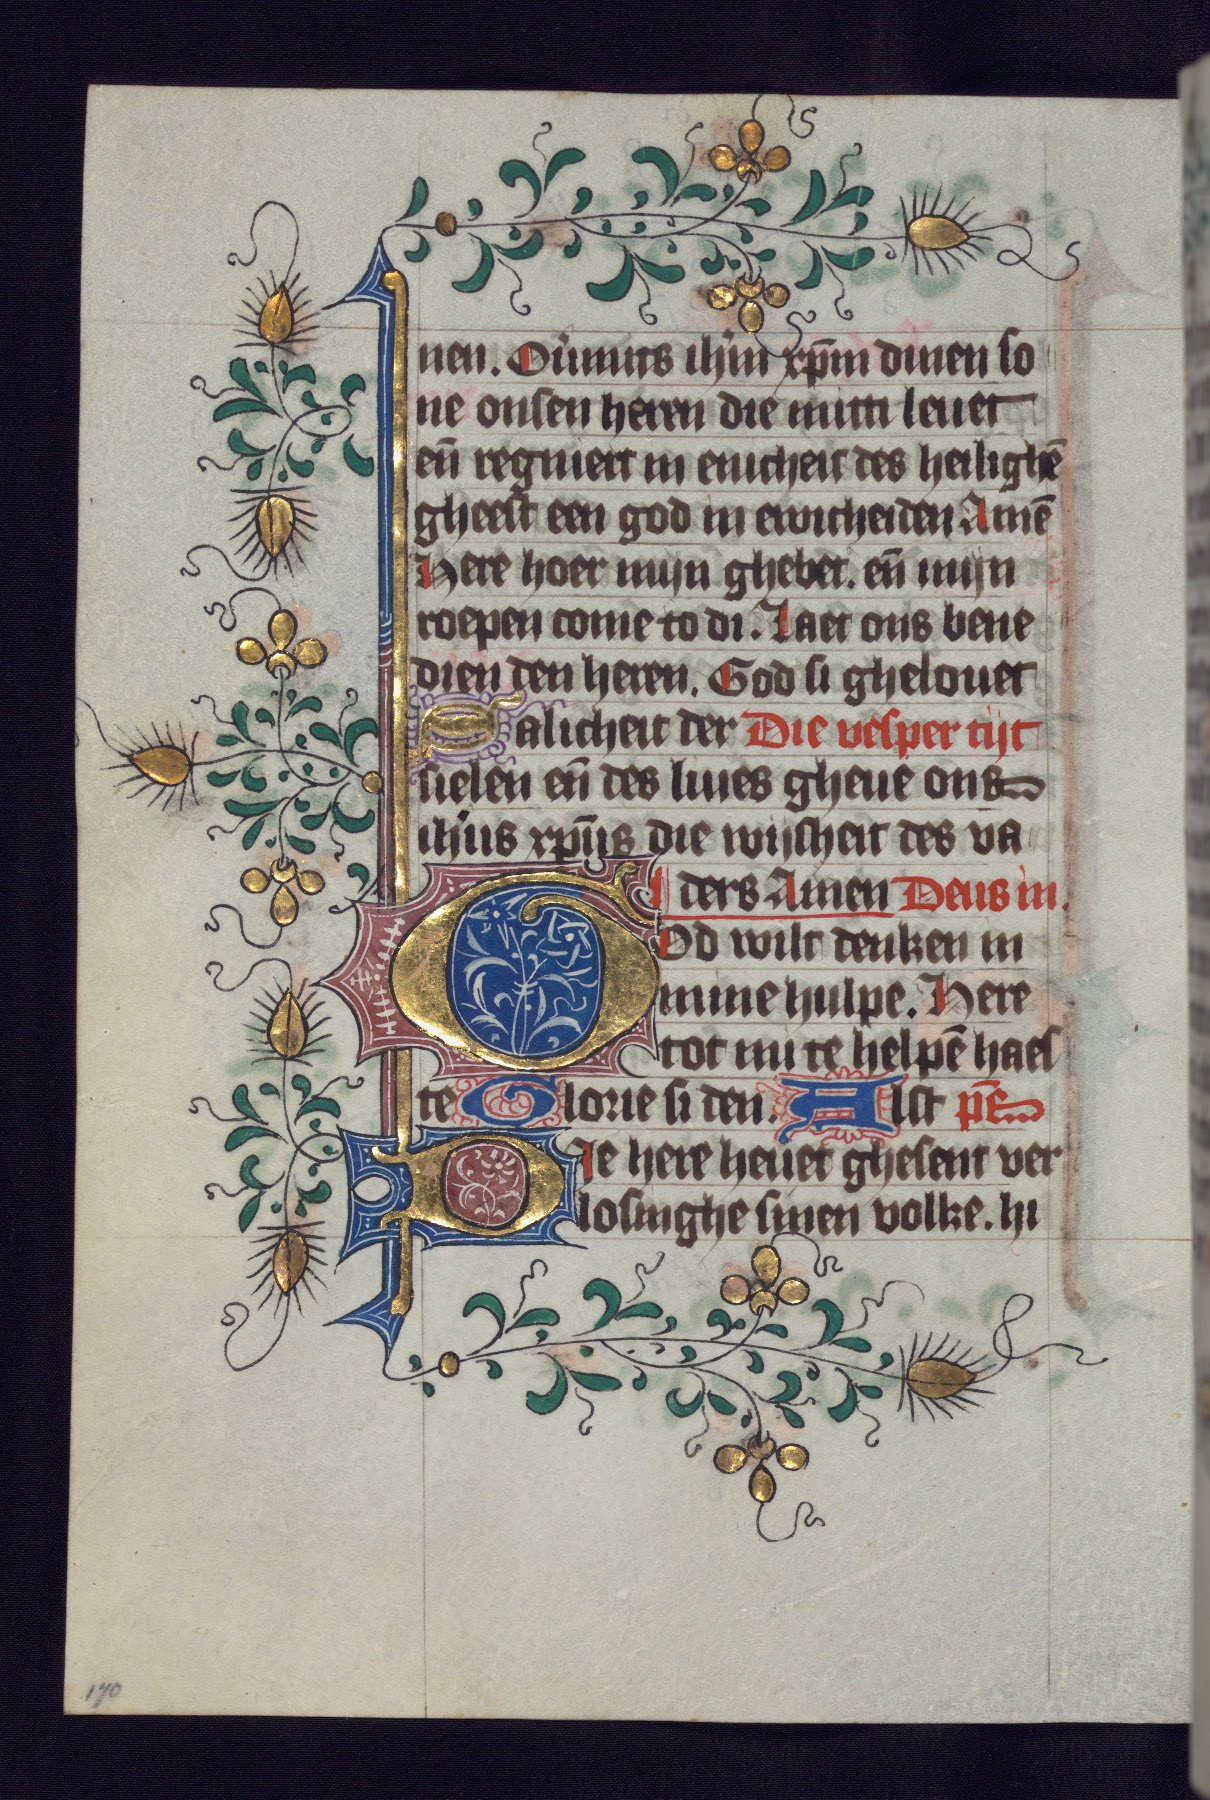 nen. Oůmits ihm̄ xp̄m dinen so
ne onsen heren die mitti leuet
en̄ regniert in enicheit des heilighē
gheest een god in ewicheiden Amē
Here hoer mijn ghebet. en̄ mijn
roepen come to di. Laet ons bene
dien den heren. God si ghelouet
Salicheit der Die vesper tijt
sielen en̄ des liues gheue ons
ihūs xpūs die wijsheit des va
ders Amen Deus in.
God wilt denken in
mine hulpe. Here
tot mi te helpē haes
te Glorie si den. Alst pē
Die here heuet ghesent ver
losinghe sinen volke. hi
170